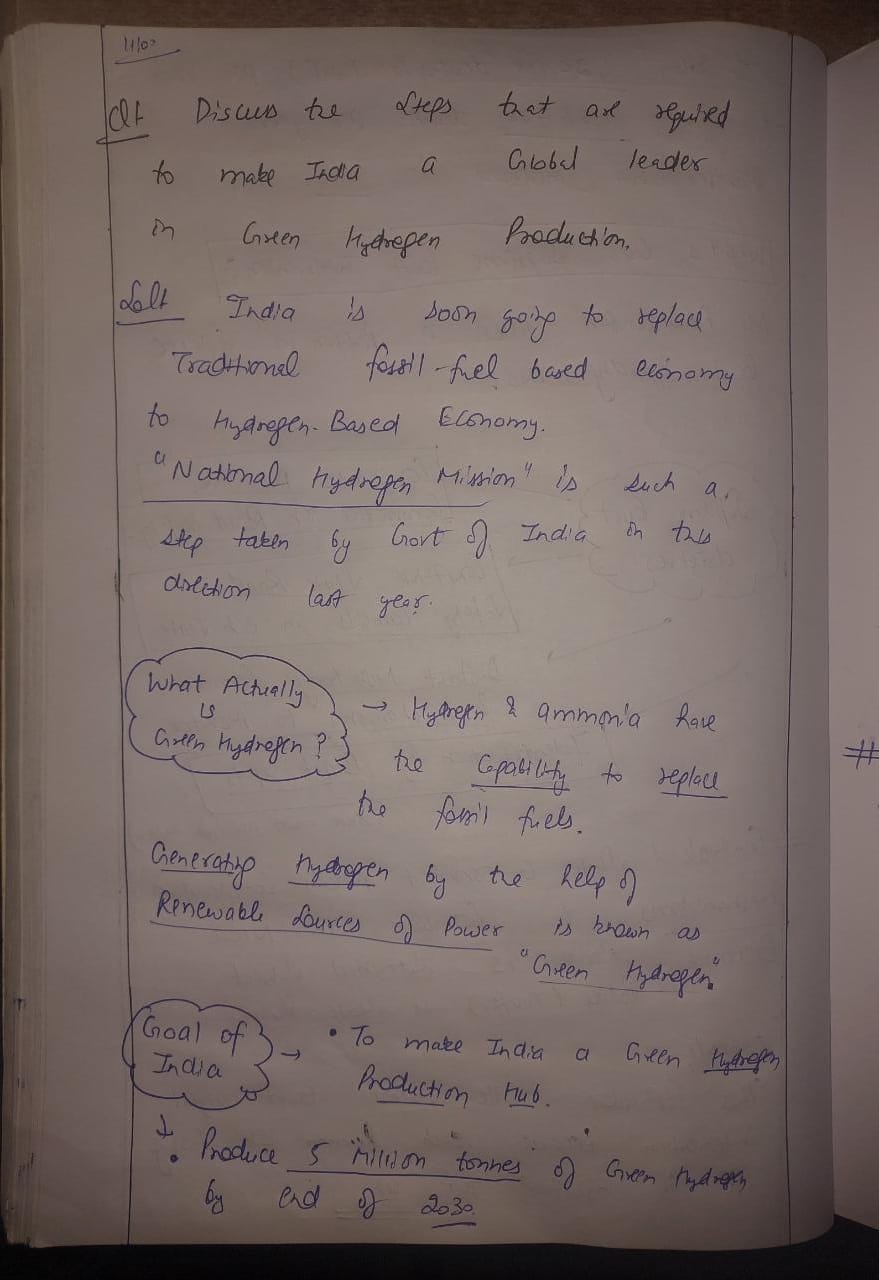 Q1. Discuss the steps that are required
to make India a Global leader
in Green Hydrogen Production.
Sol: India is soon going to replace
Traditional fossil-fuel based economy
to Hydrogen-Based Economy.
"National Hydrogen Mission" is such a
step taken by Govt of India in this
direction last year.
What Actually
is
Green Hydrogen?
→ Hydrogen & ammonia have
the Capability to replace
the fossil fuels.
Generating Hydrogen by the help of
Renewable Sources of Power is known as
"Green Hydrogen"
Goal of
India
→ • To make India a Green Hydrogen
Production Hub.
↓
• Produce 5 Million tonnes of Green Hydrogen
by end of 2030.
#